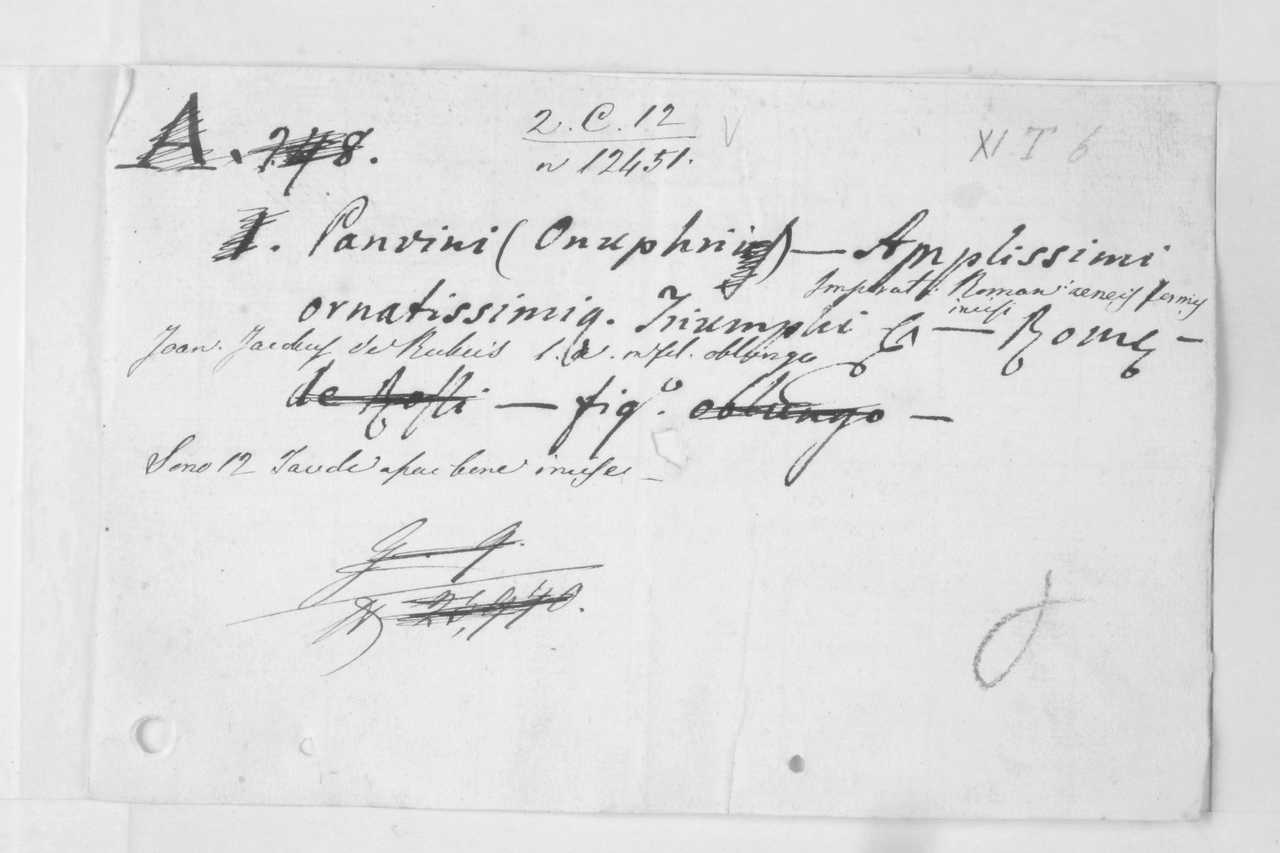 A. 748.
2. C. 12
n 12451.
XI T 6
I. Panvini (Onuphrii) — Amplissimi
Imperat. Roman: aeneis formis
ornatissimiq. Triumphi — Rome —
incisi
Joan. Jacobus de Rubeis in fol. oblungo
de Rossi — fig.o oblungo —
Sono 12 Tavole assai bene incise —
G. 9.
N 21,970.